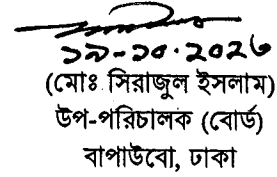 ১৯-১০-২০২৩
(মোঃ সিরাজুল ইসলাম)
উপ-পরিচালক (বোর্ড)
বাপাউবো, ঢাকা